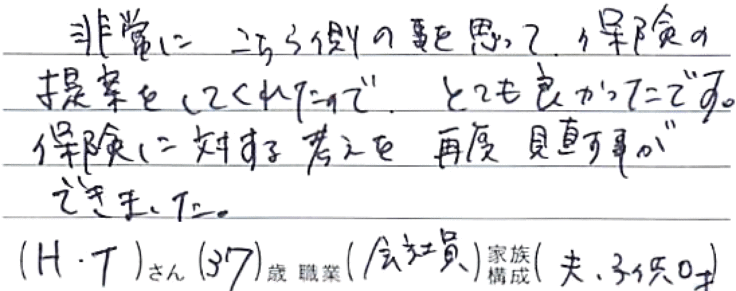 非常に こちら側の事を思って、保険の
提案をしてくれたので、とても良かったです。
保険に対する考えを 再度 見直す事が
できました。
(H・T)さん (37)歳 職業(会社員)家族構成(夫、子供0才)